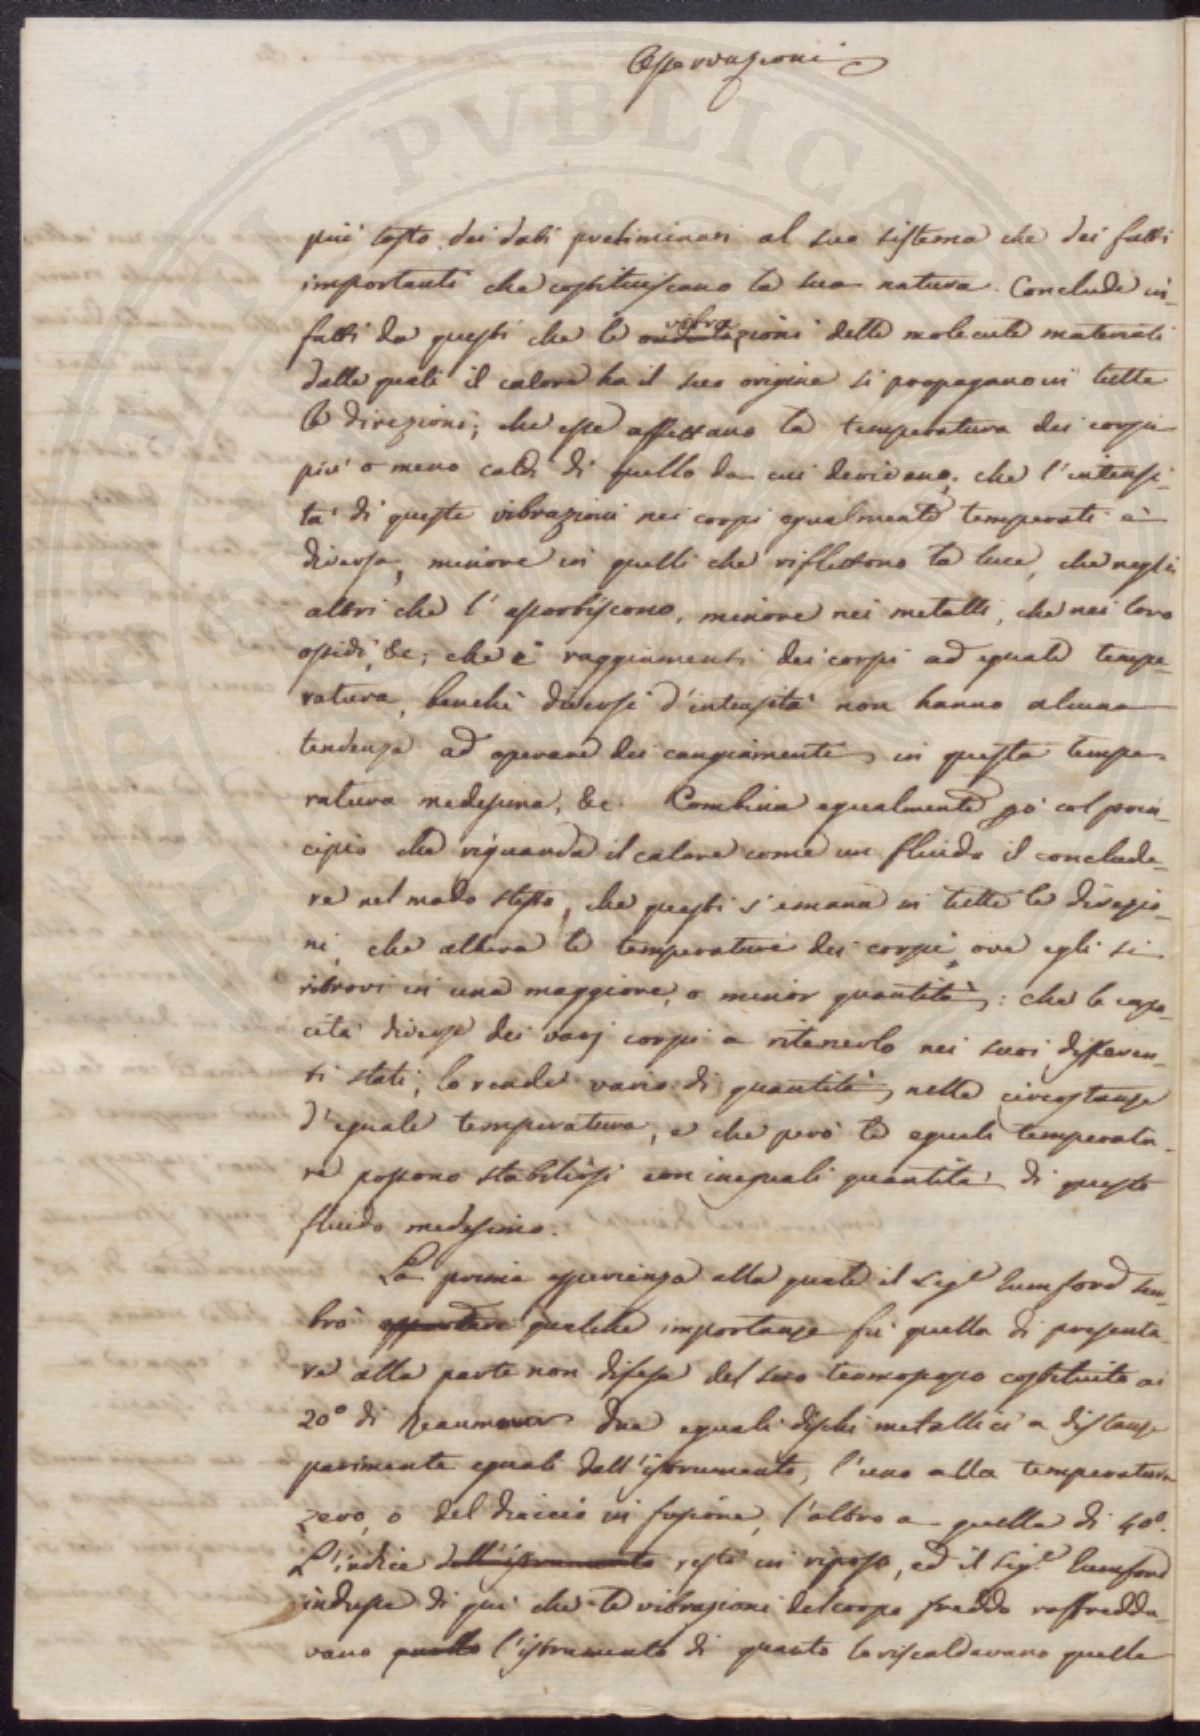 Osservazioni
più tosto dei dati preliminari al suo sistema che dei fatti
importanti che costituiscano la sua natura. Conclude in-
fatti da questi che le ondulazioni vibra delle molecule materiali
dalle quali il calore ha il suo origine si propagano in tutte
le direzioni; che esse affettano la temperatura dei corpi
più o meno caldi di quello da cui derivano; che l'intensi-
tà di queste vibrazioni nei corpi egualmente temperati è
diversa, minore in quelli che riflettono la luce, che negli
altri che l'assorbiscono, minore nei metalli, che nei loro
ossidi, &c; che i raggiamenti dei corpi ad eguale tempe-
ratura, benchè diversi d'intensità non hanno alcuna
tendenza ad operare dei cangiamenti in questa tempe-
ratura medesima, &c. Combina egualmente poi col prin-
cipio che riguarda il calore come un fluido il conclude-
re nel modo stesso, che questi s'emana in tutte le direzio-
ni, che altera le temperature dei corpi, ove egli si
ritrovi in una maggiore, o minor quantità: che le capa-
cità diverse dei varj corpi a ritenerlo nei suoi differen-
ti stati, lo rende vario di quantità, nelle circostanze
d'eguale temperatura, e che però le eguali temperatu-
re possono stabilirsi con ineguali quantità di questo
fluido medesimo.
La prima esperienza alla quale il Sigr Rumford sem-
brò qualche importanza fù quella di presenta-
re alla parte non difesa del suo termoscopio costituito ai
20° di Reaumur due eguali dischi metallici a distanze
parimente eguali dall'istrumento, l'uno alla temperatura
zero, o del diaccio in fusione, l'altro a quella di 40°.
L'indice dell'istrumento restò in riposo, ed il Sigr Rumford
indusse di qui che le vibrazioni del corpo freddo raffredda-
vano quello l'istrumento di quanto lo riscaldavano quelle